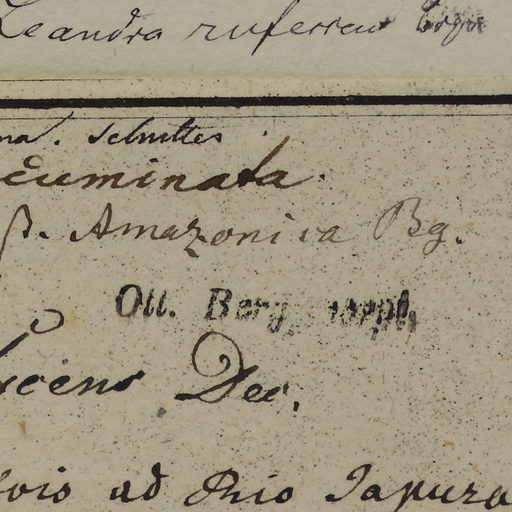 Leandra rufescens Cogn
ma. Schultes
cuminata.
β. Amazonica Bg.
Ott. Berg
scens Dec.
ad Rio Japura